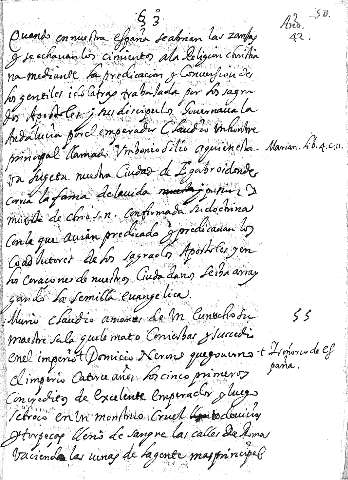 § 3º
Quando en nuestra españa se abrian las zanjas
y se echauan los cimientos a la Religion christia
na mediante la predicacion y conuersion de
los gentiles idolatras trabajada por los sagra
dos Apostoles, y sus discipulos Gouernaua la
Andalucia por el emperador Claudio un hombre
principal llamado Umbonio Silio a quien esta
ba sugeta nuestra Ciudad de Egabro donde
corria la fama de la uida
de chro s.n. confirmada su doctrina
con la que auian predicado y predicauan los
Coadiutores de los sagrados Apostoles y en
los coraçones de nuestros Ciudadanos se iba array
gando la semilla euangelica.
Murio Claudio a manos de un
que le mato con y succedio
en el imperio Domicio Neron que gouerno
el imperio Catorce años los cinco primeros
con creditos de exelente emperador y luego
se troco en un monstruo cruel
y torpeças lleno de sangre las calles de Roma
Vaciando las uenas de la gente mas principal
50.
Año.
42.
Marian. lib. 4. c.
55
t Honorio de es
paña.